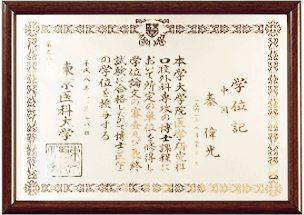 学位記
中国
秦偉光
本学大学院医学研究科
口腔外科専攻の博士課程に
おいて所定の単位を修得し
学位論文の審査及び最終
試験に合格したので博士(医学)
の学位を授与する
平成八年
東京医科大学